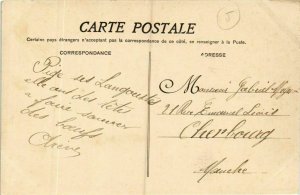 CARTE POSTALE
Certains pays étrangers n'acceptant pas la correspondance de ce côté, se renseigner à la Poste.
CORRESPONDANCE
ADRESSE
5
Pige ses Langoustes
elle ont des têtes
à faire
des bœufs
Monsieur
21 Rue Emmanuel Liais
Cherbourg
Manche